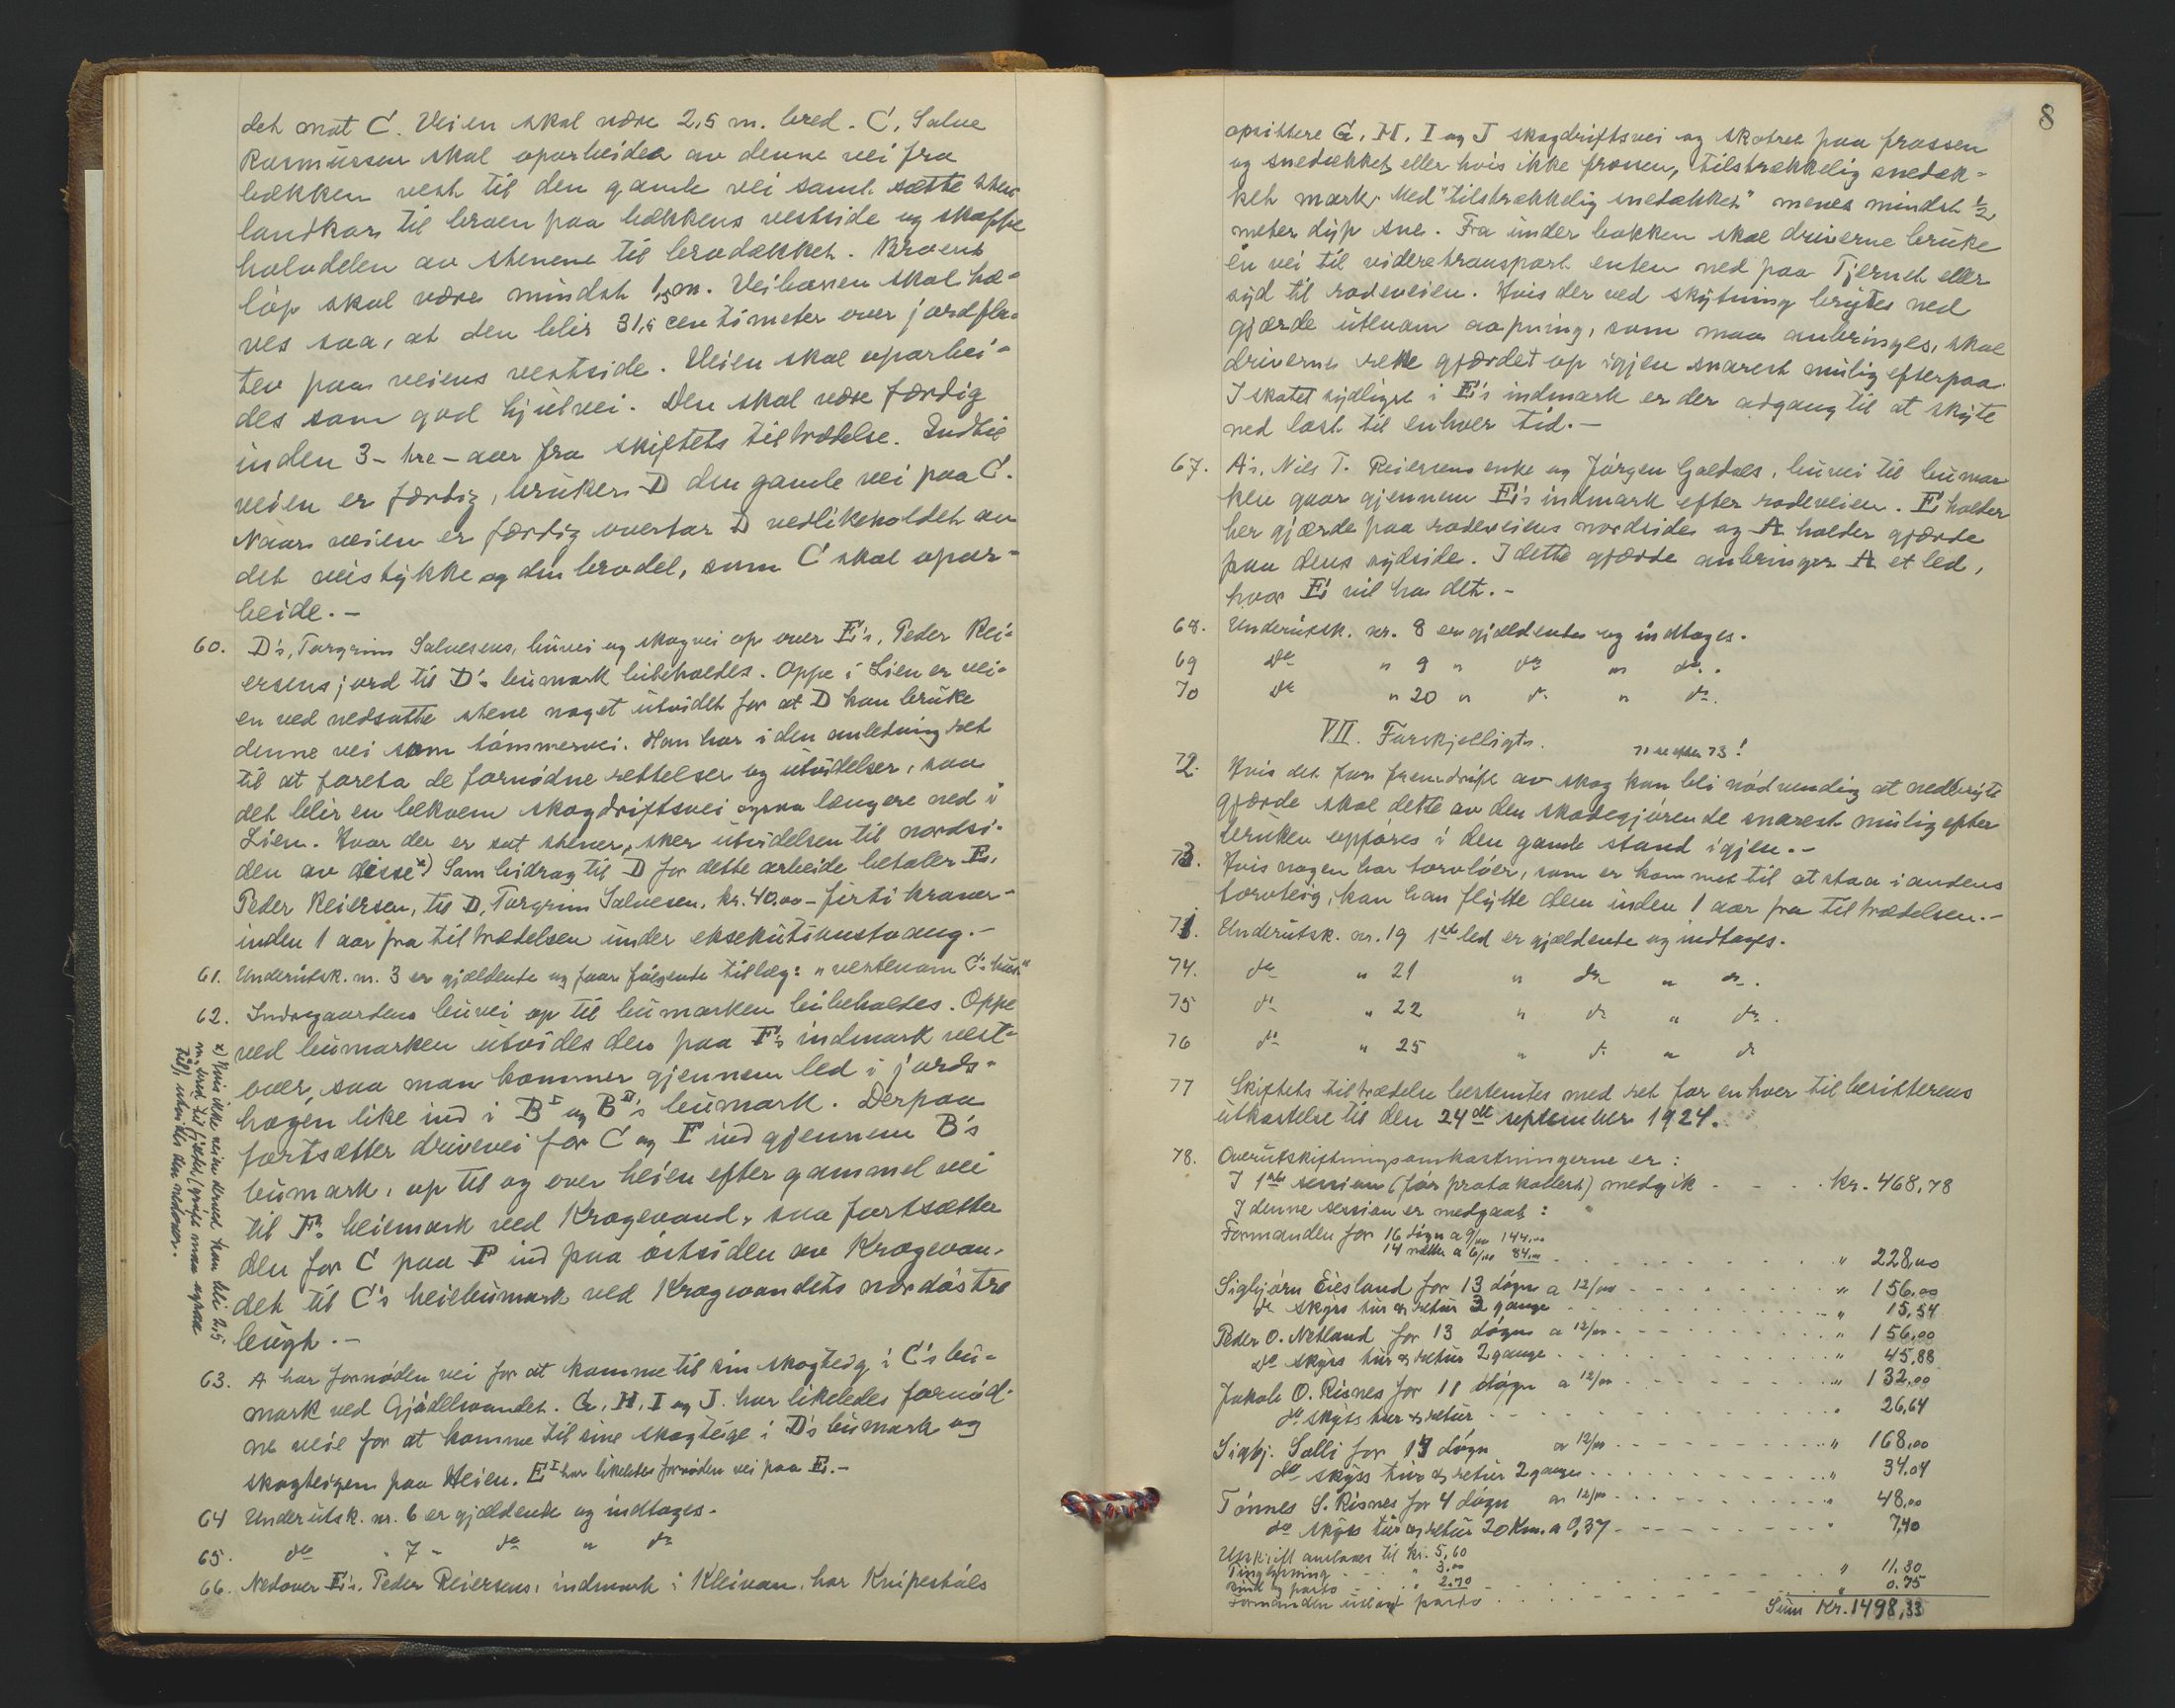 det mot C. Veien skal være 2,5 m. bred. C, Salve
Rasmussen skal oparbeide av denne vei fra
bækken vest til den gamle vei samt sætte sten
landkar til broen paa bækkens vestside og skaffe
halvdelen av stenene til brodækket. Broens
løp skal være mindst 1,5 m. Veibanen skal hæ-
ves saa, at den blir 31,5 centimeter over jordfla-
ten paa veiens vestside. Veien skal oparbei-
des som god hjulvei. Den skal være færdig
inden 3 - tre - aar fra skiftets tiltrædelse. Indtil
veien er færdig, bruker D den gamle vei paa C.
Naar veien er færdig overtar D vedlikeholdet av
det veistykke og den brodel, som C skal opar-
beide. -
60. D's, Torgrim Salvesens, buvei og skogvei op over E's, Peder Rei-
ersens jord til D's bumark bibeholdes. Oppe i Lien er vei-
en ved nedsatte stene noget utvidet for at D kan bruke
denne vei som tømmervei. Han har i den anledning ret
til at foreta de fornødne rettelser og utvidelser, saa
det blir en bekvem skogdriftsvei ogsaa længere ned i
Lien. Hvor der er sat stener, sker utvidelsen til nordsi-
den av disse x) Som bidrag til D for dette arbeide betaler E,
Peder Reiersen, til D, Torgrim Salvesen, kr. 40,00 - førti kroner -
inden 1 aar fra tiltrædelsen under eksekutionstvang. -
61. Underutsk. nr. 3 er gjældende og faar følgende tillæg: "vestenom C's hus"
62. Indregaardens buvei op til bumarken bibeholdes. Oppe
ved bumarken utvides den paa F's indmark vest-
over, saa man kommer gjennem led i jords-
hagen like ind i B I og B II's bumark. Derpaa
fortsætter drivevei for C og F ind gjennem B's
bumark, op til og over heien efter gammel vei
til F's heiemark ved Kragevand, saa fortsætter
den for C paa F ind paa østsiden av Kragevan-
det til C's heiebumark ved Kragevandets nordøstre
bugt. -
x) Hvis ikke veien derved kan bli 2,5
m. bred, til fjeldet (grøft maa ogsaa
til), utvides den nedover.
63. A har fornøden vei for at komme til sin skogteig i C's bu-
mark ved Gjødelvandet. G, H, I og J. har likeledes fornød-
ne veie for at komme til sine skogteige i D's bumark og
skogteigen paa Heien. E I har likeledes fornøden vei paa E. -
64 Underutsk. nr. 6 er gjældende og indtages. -
65. do " 7 " do " do
66. Nedover E's, Peder Reiersens, indmark i Kleivan, har Knipestøls
8
opsittere G, H, I og J skogdriftsvei og skotret paa frossen
og snedækket eller hvis ikke frossen, tilstrækkelig snedæk-
ket mark. Med "tilstrækkelig snedækket" menes mindst 1/2
meter dyp sne. Fra under bakken skal driverne bruke
en vei til videretransport enten ned paa Tjernet eller
syd til rodeveien. Hvis der ved skytning brytes ned
gjærde utenom aapning, som maa anbringes, skal
driverne sette gjærdet op igjen snarest mulig efterpaa.
I skotet sydligst i E's indmark er der adgang til at skyte
ned last til enhver tid. -
67. A's, Nils T. Reiersens enke og Jørgen Galdals, buvei til bumar
ken gaar gjennem E's indmark efter rodeveien. E holder
her gjærde paa rodeveiens nordside og A holder gjærde
paa dens sydside. I dette gjærde anbringer A et led,
hvor E vil ha det. -
68. Underutsk. nr. 8 er gjældende og indtages.
69 do " 9 " do " do.
70 do " 20 " do " do.
VII. Forskjelligt.
71 se efter 73!
72. Hvis det for fremdrift av skog kan bli nødvendig at nedbryte
gjærde skal dette av den skadegjørende snarest mulig efter
bruken opføres i den gamle stand igjen. -
73. Hvis nogen har torvløer, som er kommet til at staa i andens
torvteig, kan han flytte dem inden 1 aar fra tiltrædelsen. -
71. Underutsk. nr. 19 1ste led er gjældende og indtages.
74. do " 21 " do " do.
75 do " 22 " do " do.
76 do " 25 " do " do
77 Skiftets tiltrædelse bestemtes med ret for enhver til besitterens
utkastelse til den 24de september 1924.
78. Overutskiftningsomkostningerne er:
I 1ste session (før protokollert) medgik - - - kr. 468,78
I denne session er medgaat:
Formanden for 16 døgn a 9/00 144,00
14 nætter a 6/00 84,00 . . . " 228,00
Sigbjørn Eiesland for 13 døgn a 12/00 - - - " 156,00
do skyss tur og retur 3 gange . . . " 15,54
Peder O. Netland for 13 døgn a 12/00 - - - " 156,00
do skyss tur og retur 2 gange . . . " 45,88
Jakob O. Risnes for 11 døgn a 12/00 - - - " 132,00
do skyss tur og retur - - - " 26,64
Sigbj. Solli for 14 døgn a 12/00 - - - " 168,00
do skyss tur og retur 2 gange . . . " 34,04
Tønnes S. Risnes for 4 døgn a 12/00 - - - " 48,00
do skyss tur og retur 20 km. a 0,37 - - - " 7,40
Utskrift anslaaes til kr. 5,60
Tinglysning - - " 3,00
bind og porto - - " 2.70 - - - " 11.30
Formanden utlagt porto . . . " 0.75
Sum Kr. 1498,33